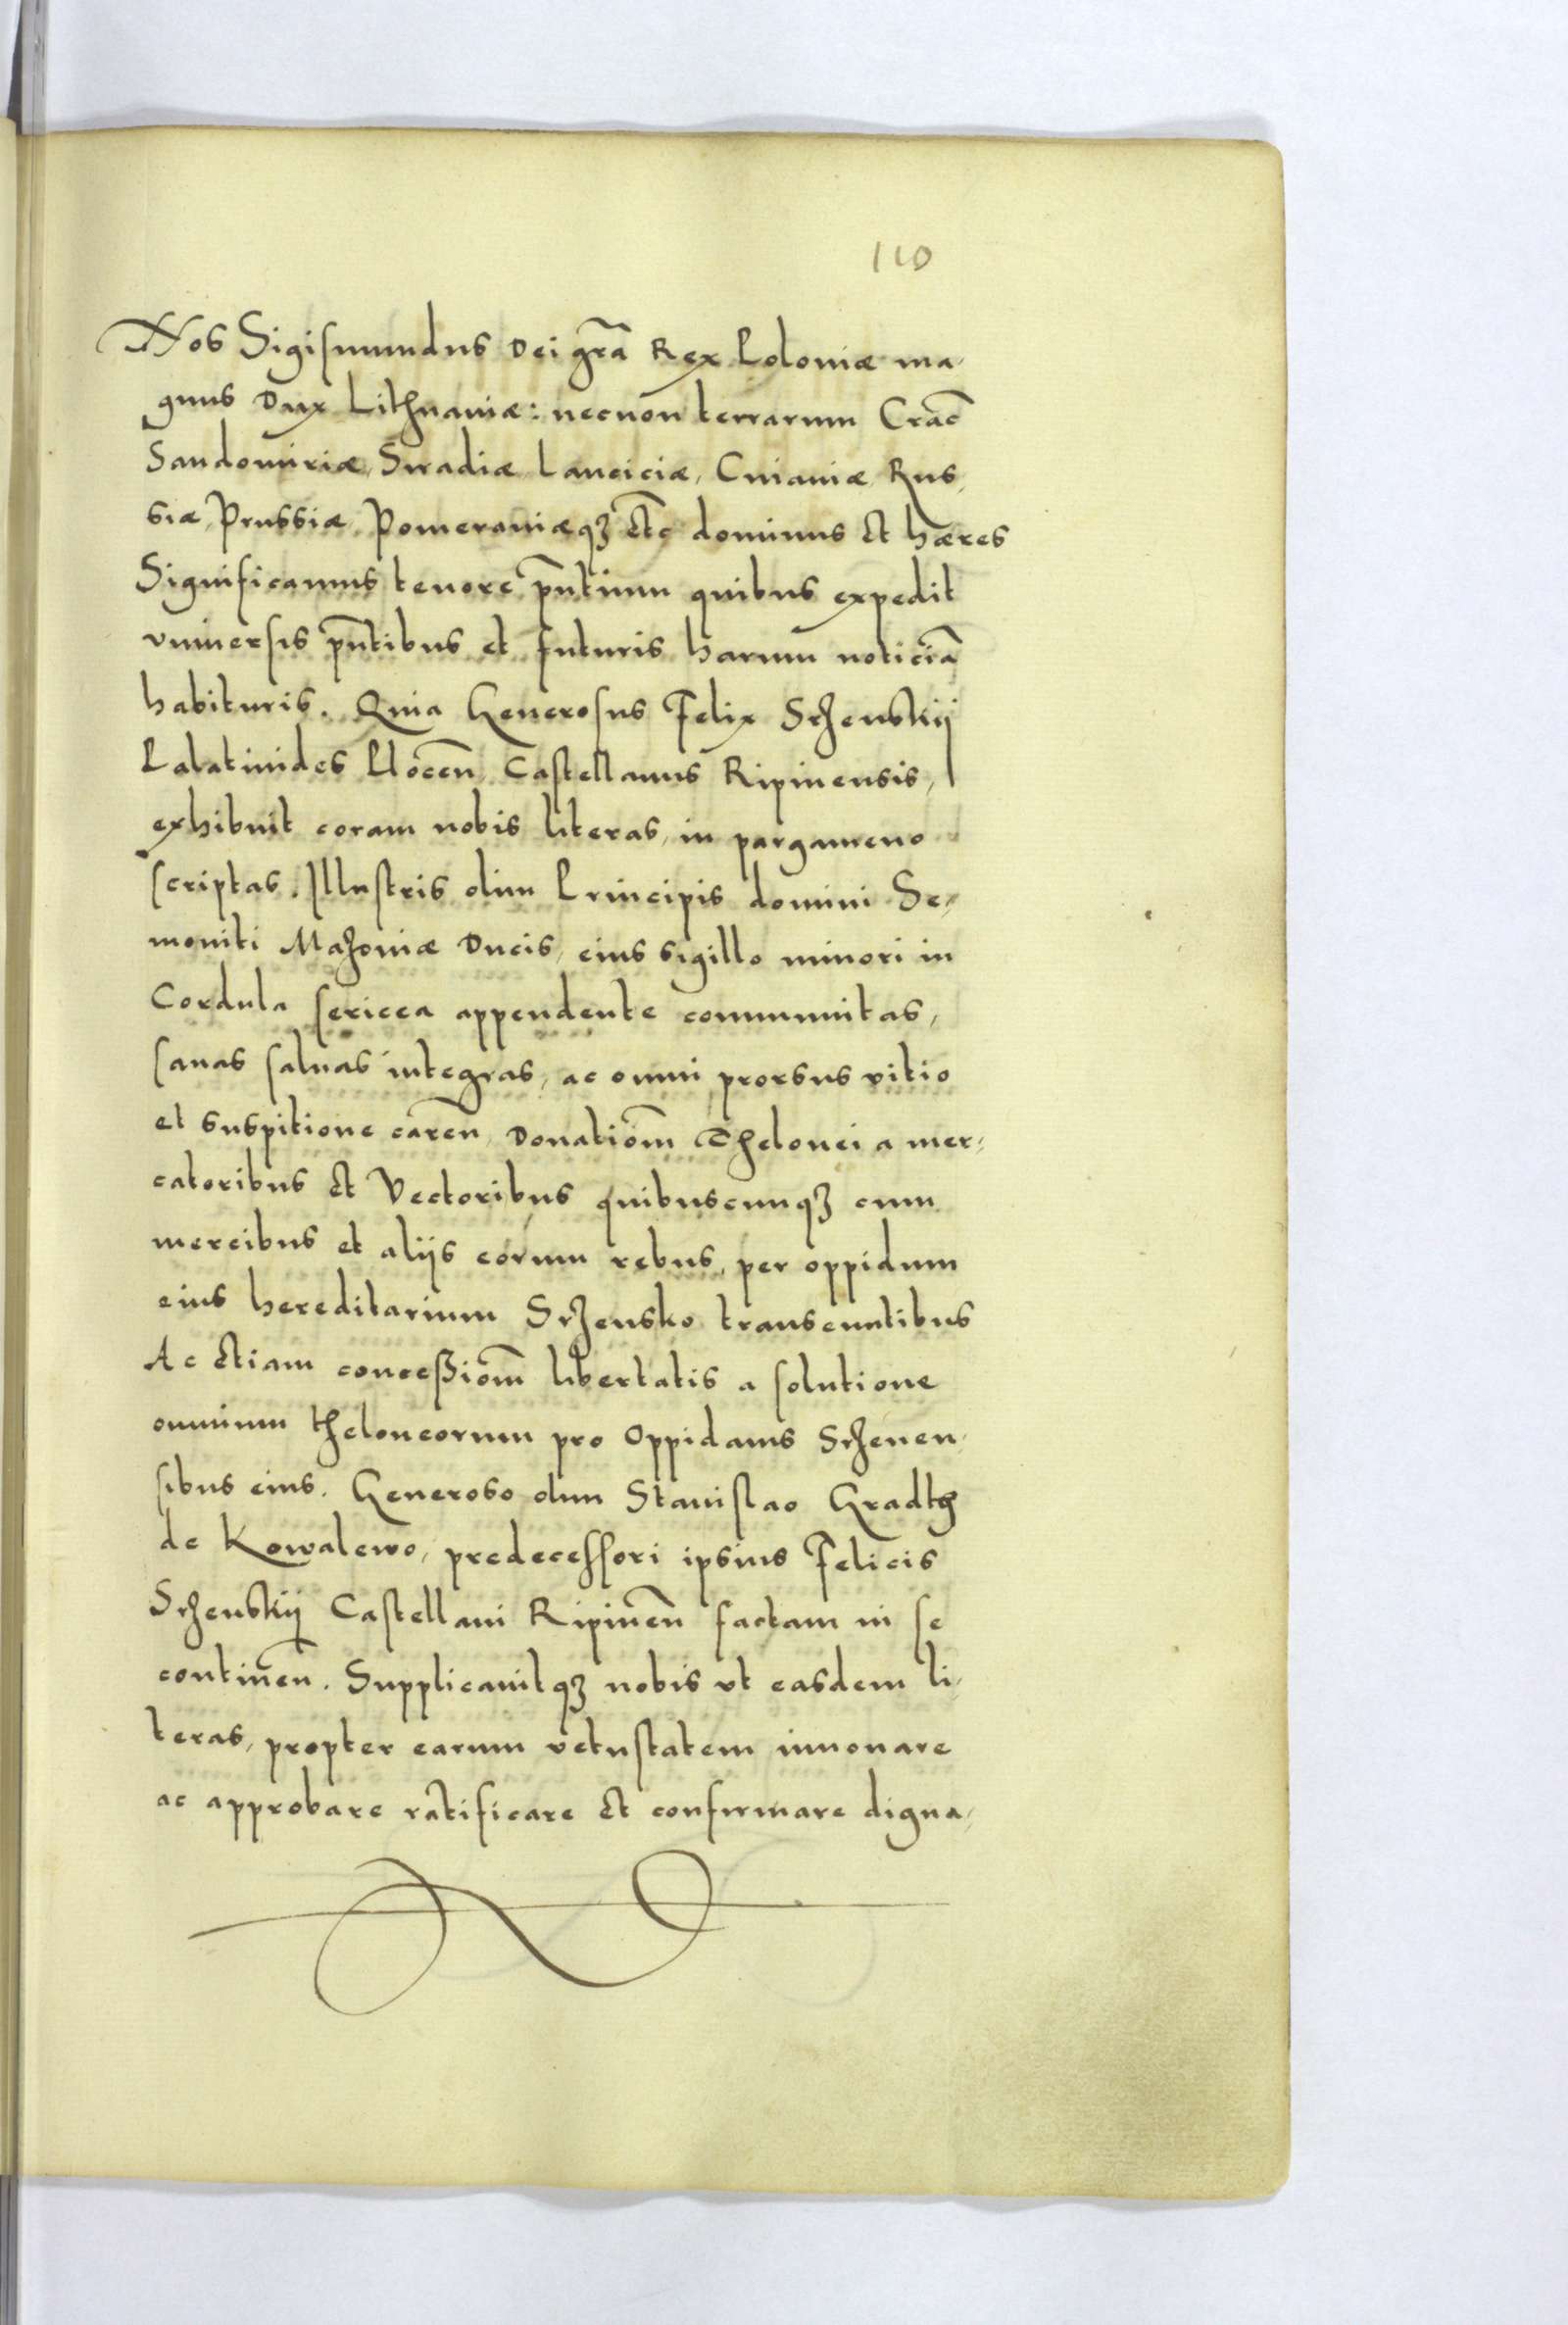 110
Nos Sigismundus Dei gr̃a Rex Poloniæ ma,
gnus Dux Lithuaniæ: necnon terrarum Crac̃
Sandomiriæ, Siradiæ Lanciciæ, Cuiauiæ Rus,
siæ, Prussiæ Pomeraniæqꝫ etc̃ dominus et hæres
Significamus tenore p̃ntium quibus expedit
vniuersis p̃ntibus et futuris harum noticiã
habituris. Quia Generosus Felix Srzenskij
Palatinides Plocen̄ Castellanus Ripinensis,
exhibuit coram nobis literas, in pargameno
scriptas. Illustris olim Principis domini Se,
mouiti Mazouiæ Ducis, eius sigillo minori in
Cordula sericea appendente communitas,
sanas saluas integras, ac omni prorsus vitio
et suspitione caren̄, Donatiom̃ Thelonei a mer,
catoribus et Vectoribus quibuscunqꝫ cum
mercibus et alijs eorum rebus, per oppidum
eius hereditarium Srzensko transeuntibus
Ac etiam conceßiom̃ libertatis a solutione
omnium theloneorum pro Oppidanis Srzenen,
sibus eius. Generoso olim Stanislao Gradth
de Kowalewo, predecessori ipsius Felicis
Srzenskij Castellani Ripinen̄ factam in se
continen̄. Supplicauitqꝫ nobis vt easdem li,
teras, propter earum vetustatem innouare
ac approbare ratificare et confirmare digna,